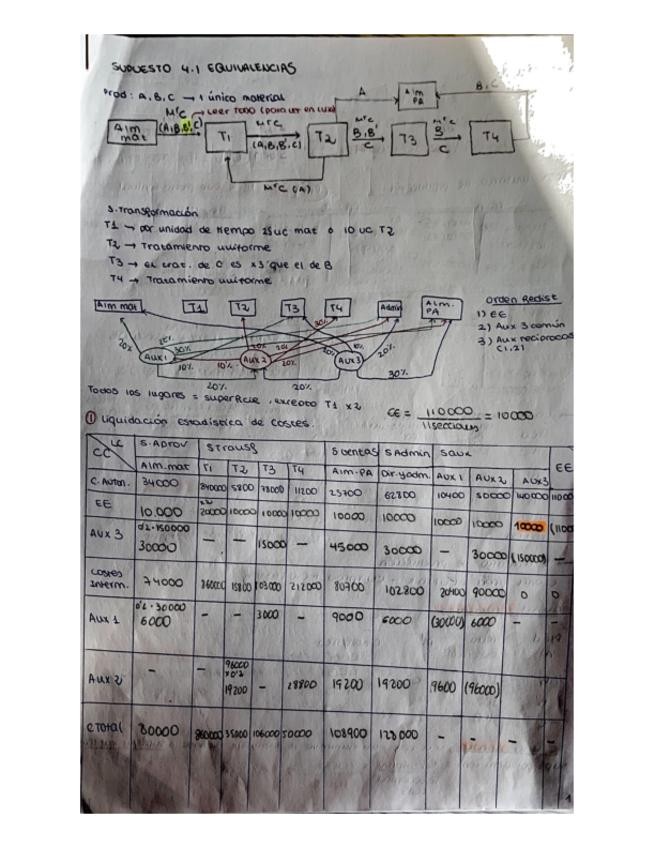 SUPUESTO 4.1 EQUIVALENCIAS
Prod: A, B, C → 1 único material
MºC → Leer TODO (para ver en lux)
Alm mat
(A,B,B',C)
T1
MºC
(A,B,B',C)
T2
MºC
B,B'
C
T3
MºC
B
C
T4
A
Alm PA
B,C
MºC (A)
S. Transformación
T1 → por unidad de tiempo 25 uc mat o 10 UC T2
T2 → Tratamiento uniforme
T3 → el trat. de C es x3 que el de B
T4 → Tratamiento uniforme
Alm mat T1 T2 T3 T4 Admin Alm. PA
Orden Redist
1) EE
2) Aux 3 común
3) Aux reciprocos
(1,2)
Aux 1 Aux 2 Aux 3
20% 30% 10% 10% 20% 20% 30% 20% 20% 30%
Todos los lugares = superficie, excepto T1 x2
CE = 110000 / 11 secciones = 10000
① Liquidación estadística de costes.
CC LC S. Aprov S transf S ventas S Admin S aux EE
Alm. mat T1 T2 T3 T4 Alm-PA Dir. y adm. Aux 1 Aux 2 Aux 3
C. Auton. 34000 840000 5800 78000 11200 25700 62800 10400 50000 140000 11000
EE 10.000 x2 20000 10000 10000 10000 10000 10000 10000 10000 10000 (1100
Aux 3 0'2·150000 30000 — — 15000 — 45000 30000 — 30000 (150000) —
Costes Interm. 74000 860000 15800 103000 212000 80700 102800 20400 90000 0 0
Aux 1 0'2·30000 6000 — — 3000 — 9000 6000 (30000) 6000 — —
Aux 2 — — 96000 x0'2 19200 — 28800 19200 19200 9600 (96000)
C Total 80000 860000 35000 106000 50000 108900 128000 — — — —
1